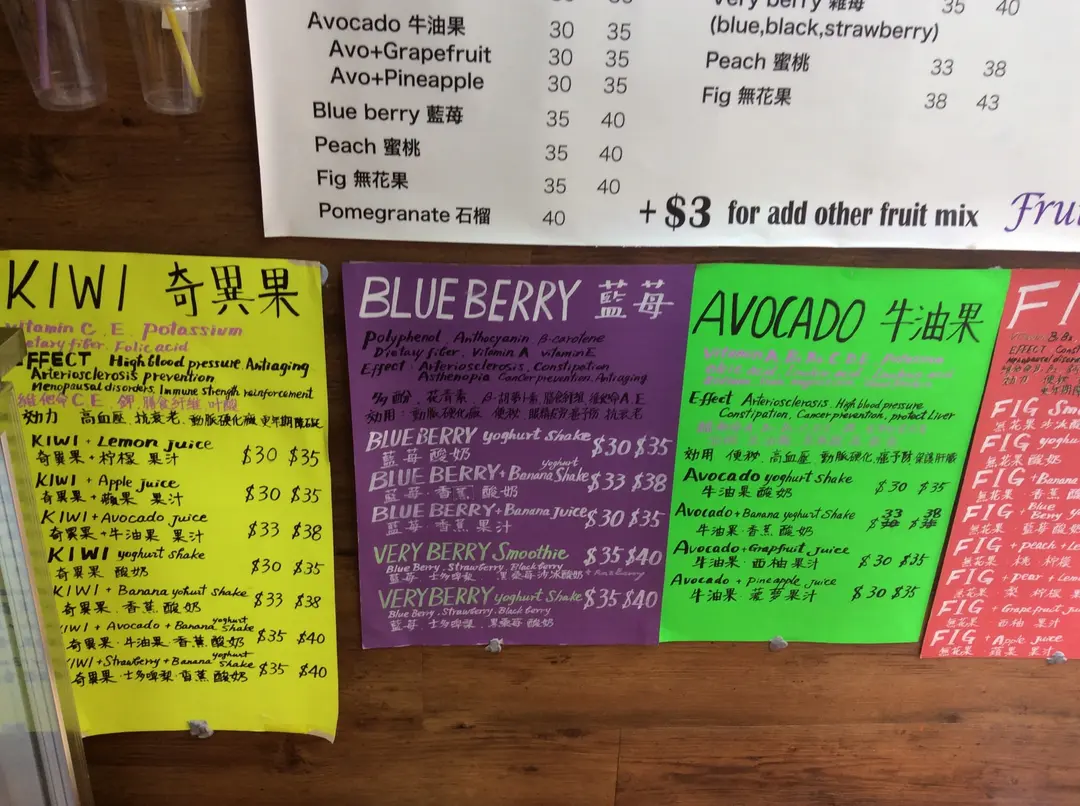 Avocado 牛油果 30 35
Avo+Grapefruit 30 35
Avo+Pineapple 30 35
Blue berry 藍莓 35 40
Peach 蜜桃 35 40
Fig 無花果 35 40
Pomegranate 石榴 40
Very berry 雜莓 35 40
(blue,black,strawberry)
Peach 蜜桃 33 38
Fig 無花果 38 43
+$3 for add other fruit mix
KIWI 奇異果
Vitamin C, E, Potassium
Dietary fiber. Folic acid
EFFECT High blood pressure. Antiaging
Arteriosclerosis prevention
Menopausal disorders Immune strength reinforcement
維他命C E 鉀 膳食纤维 叶酸
効力 高血压, 抗衰老, 動脈硬化
KIWI + Lemon juice $30 $35
奇異果 + 柠檬 果汁
KIWI + Apple juice $30 $35
奇異果 + 蘋果 果汁
KIWI + Avocado juice $33 $38
奇異果 + 牛油果 果汁
KIWI yoghurt shake $30 $35
奇異果 酸奶
KIWI + Banana yohurt shake $33 $38
奇異果 . 香蕉 酸奶
KIWI + Avocado + Banana yoghurt shake $35 $40
奇異果 . 牛油果 香蕉 酸奶
KIWI + Strawberry + Banana yoghurt shake $35 $40
奇異果 . 士多啤梨 . 香蕉 酸奶
BLUE BERRY 藍莓
Polyphenol, Anthocyanin β-carotene
Dietary fiber, Vitamin A vitamin E
Effect : Arteriosclerosis. Constipation
Asthenopia Cancer prevention. Antiaging
多酚, 花青素 β-胡萝卜素 膳食纤维 维他命A.E
効用 : 動脈硬化 便秘 抗衰老
BLUE BERRY yoghurt shake $30 $35
藍莓 酸奶
BLUE BERRY + Banana yoghurt Shake $33 $38
藍莓 . 香蕉 酸奶
BLUE BERRY + Banana juice $30 $35
藍莓 . 香蕉 果汁
VERY BERRY Smoothie $35 $40
Blue Berry. Strawberry. Blackberry
藍莓 士多啤梨 黑桑莓 沙冰酸奶
VERY BERRY yoghurt Shake $35 $40
Blue Berry. Strawberry. Black berry
藍莓 士多啤梨 . 黑桑莓 酸奶
AVOCADO 牛油果
Effect Arteriosclerosis. High blood pressure
Constipation, Cancer prevention, protect Liver
効用 便秘 . 高血压 動脈硬化 保護肝臟
Avocado yoghurt shake $30 $35
牛油果 酸奶
Avocado + Banana yoghurt Shake $33 $38
牛油果 香蕉 酸奶
Avocado + Grapfruit juice $30 $35
牛油果 . 西柚 果汁
Avocado + Pineapple juice $30 $35
牛油果 菠萝 果汁
FI
EFFECT
FIG Smo
無花果 沙冰
FIG yoghu
無花果 酸奶
FIG + Banana
無花果 . 香蕉
FIG + Blue Berry
無花果 . 藍莓 酸奶
FIG + peach + Le
無花果 . 桃 柠檬
FIG + pear + Lem
無花果 . 梨 柠檬
FIG + Grapefruit ju
無花果 西柚 果
FIG + Apple juice
無花果 . 蘋果 果汁